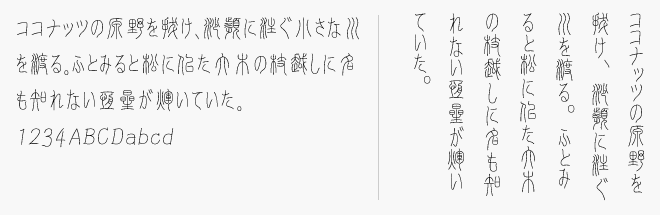 ココナッツの原野を駆け、に注ぐ小さな川
を渡る。ふとみると松に似た大木の枝越しに名
も知れない恒星が輝いていた。
1234ABCDabcd
ココナッツの原野を
駆け、に注ぐ
川を渡る。ふとみ
ると松に似た大木
の枝越しに名も知
れない恒星が輝い
ていた。